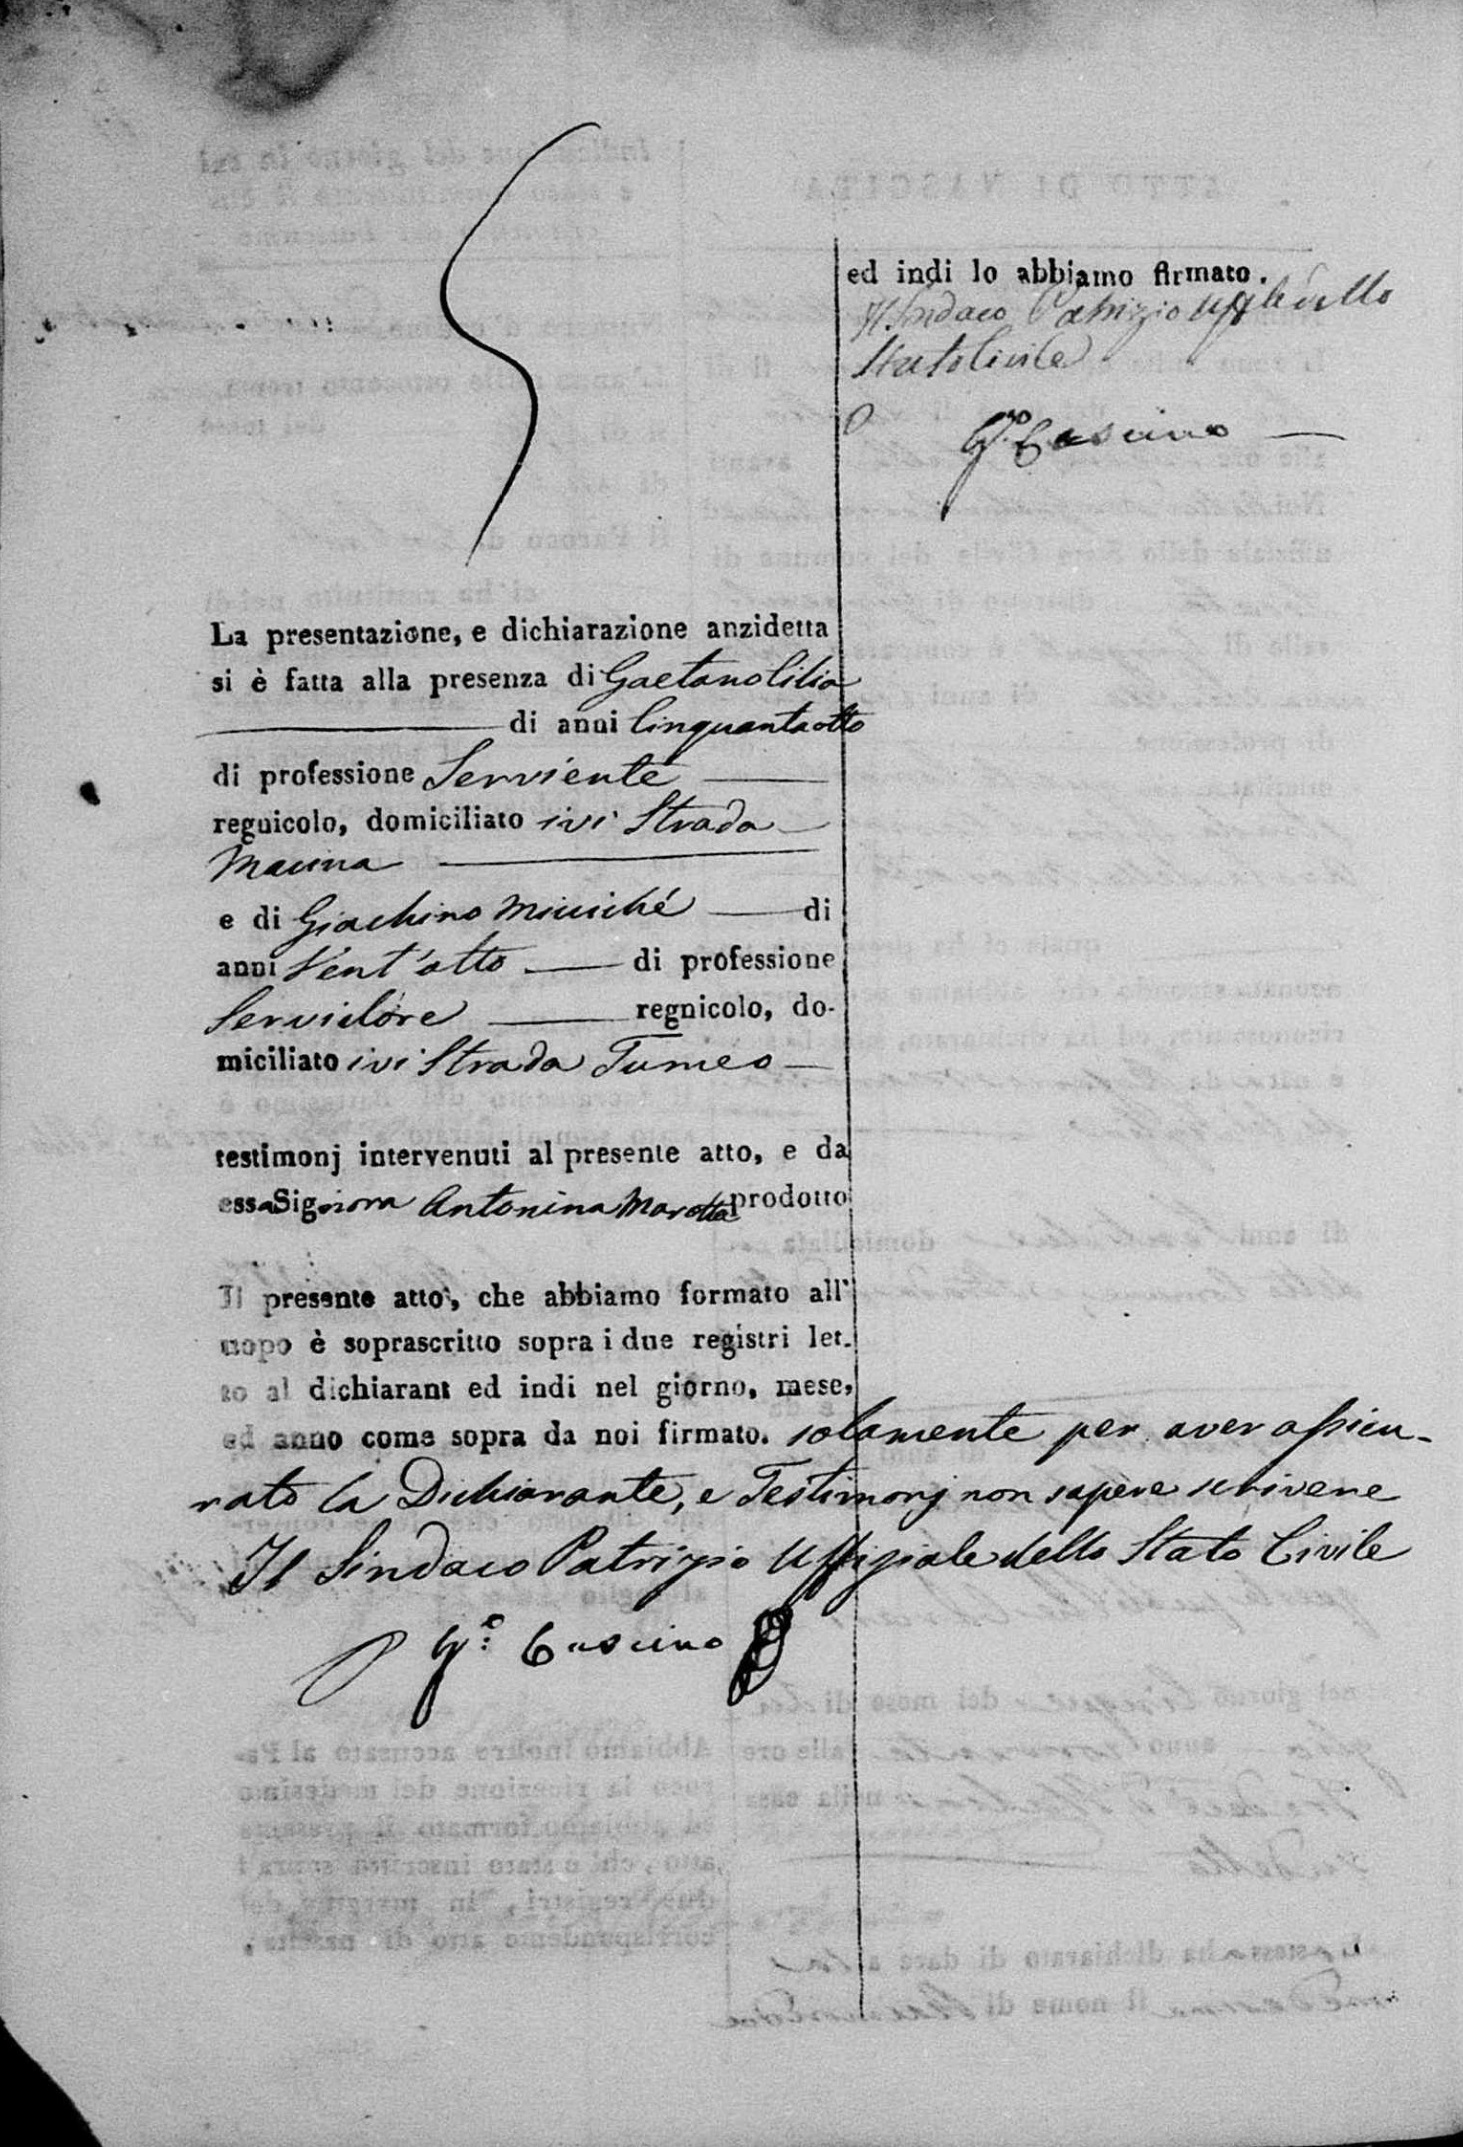 La presentazione, e dichiarazione anzidetta
si è fatta alla presenza di Gaetano Cilia
di anni Cinquantaotto
di professione Serviente
regnicolo, domiciliato ivi Strada
Marina
e di Giachino Miciché di
anni Vent'otto di professione
Servidore regnicolo, do-
miciliato ivi Strada Tumeo
testimonj intervenuti al presente atto, e da
essa Signora Antonina Marotta prodotto
Il presente atto, che abbiamo formato all'
uopo è soprascritto sopra i due registri let-
to al dichiarant ed indi nel giorno, mese,
ed anno come sopra da noi firmato. solamente per aver assicu-
rato la Dichiarante, e Testimonj non sapere scrivere
Il Sindaco Patrizio Uffiziale dello Stato Civile
Cascino
ed indi lo abbiamo firmato.
Il Sindaco Patrizio Uffle dello
Stato Civile
Cascino